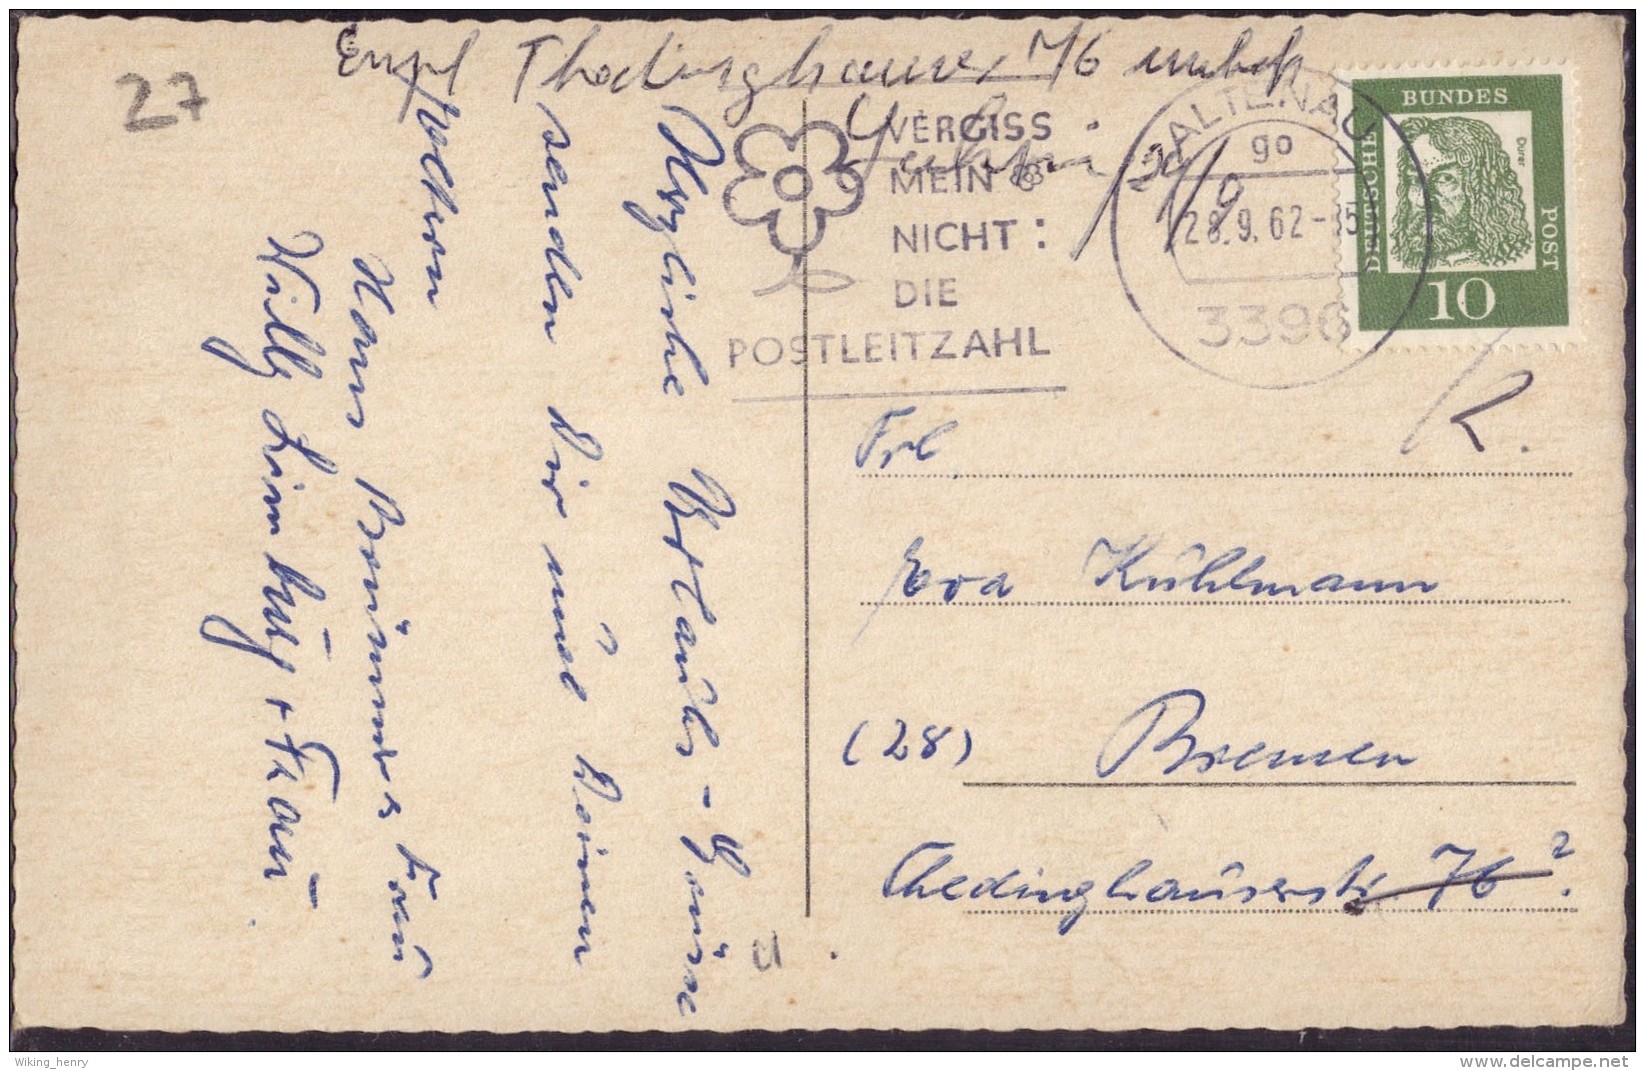 27
Empf Thedinghauser 76 unbek
VERGISS
MEIN
NICHT:
DIE
POSTLEITZAHL
ALTENAU
go
28.9.62-15
3396
29/9
DEUTSCHE
BUNDES
POST
Dürer
10
R.
Herzliche Urlaubs-Grüsse
senden Dir und Deinen
Eltern
Hans Brünner Frau
Willy Limburg + Frau.
Frl
Eva Kühlmann
(28) Bremen
Thedinghauserstr 76?
Wiking_henry
delcampe.net